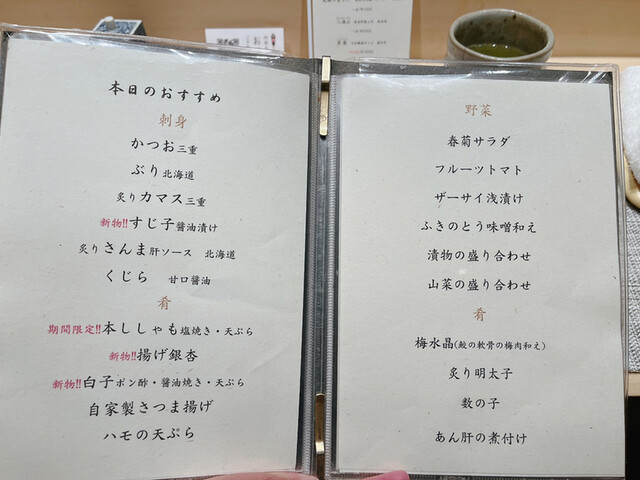 本日のおすすめ
刺身
かつお三重
ぶり北海道
炙りカマス三重
新物!!すじ子醤油漬け
炙りさんま肝ソース 北海道
くじら 甘口醤油
肴
期間限定!!本ししゃも塩焼き・天ぷら
新物!!揚げ銀杏
新物!!白子ポン酢・醤油焼き・天ぷら
自家製さつま揚げ
ハモの天ぷら
野菜
春菊サラダ
フルーツトマト
ザーサイ浅漬け
ふきのとう味噌和え
漬物の盛り合わせ
山菜の盛り合わせ
肴
梅水晶(鮫の軟骨の梅肉和え)
炙り明太子
数の子
あん肝の煮付け